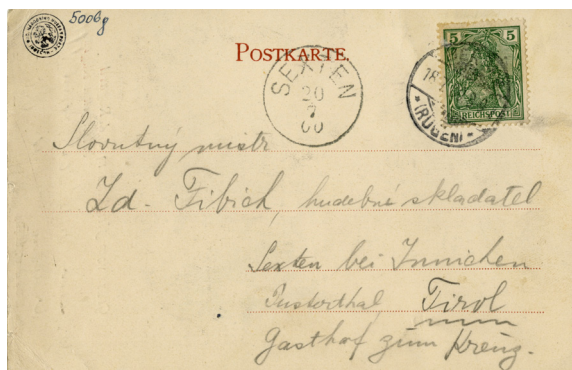 5006g
POSTKARTE.
SEXTEN
20
7
00
18
(RÜGEN)
5
REICHSPOST
Slovutný mistr
Zd. Fibich, hudebné skladatel
Sexten bei Innichen
Pusterthal Tirol
Gasthof zum Kreuz.